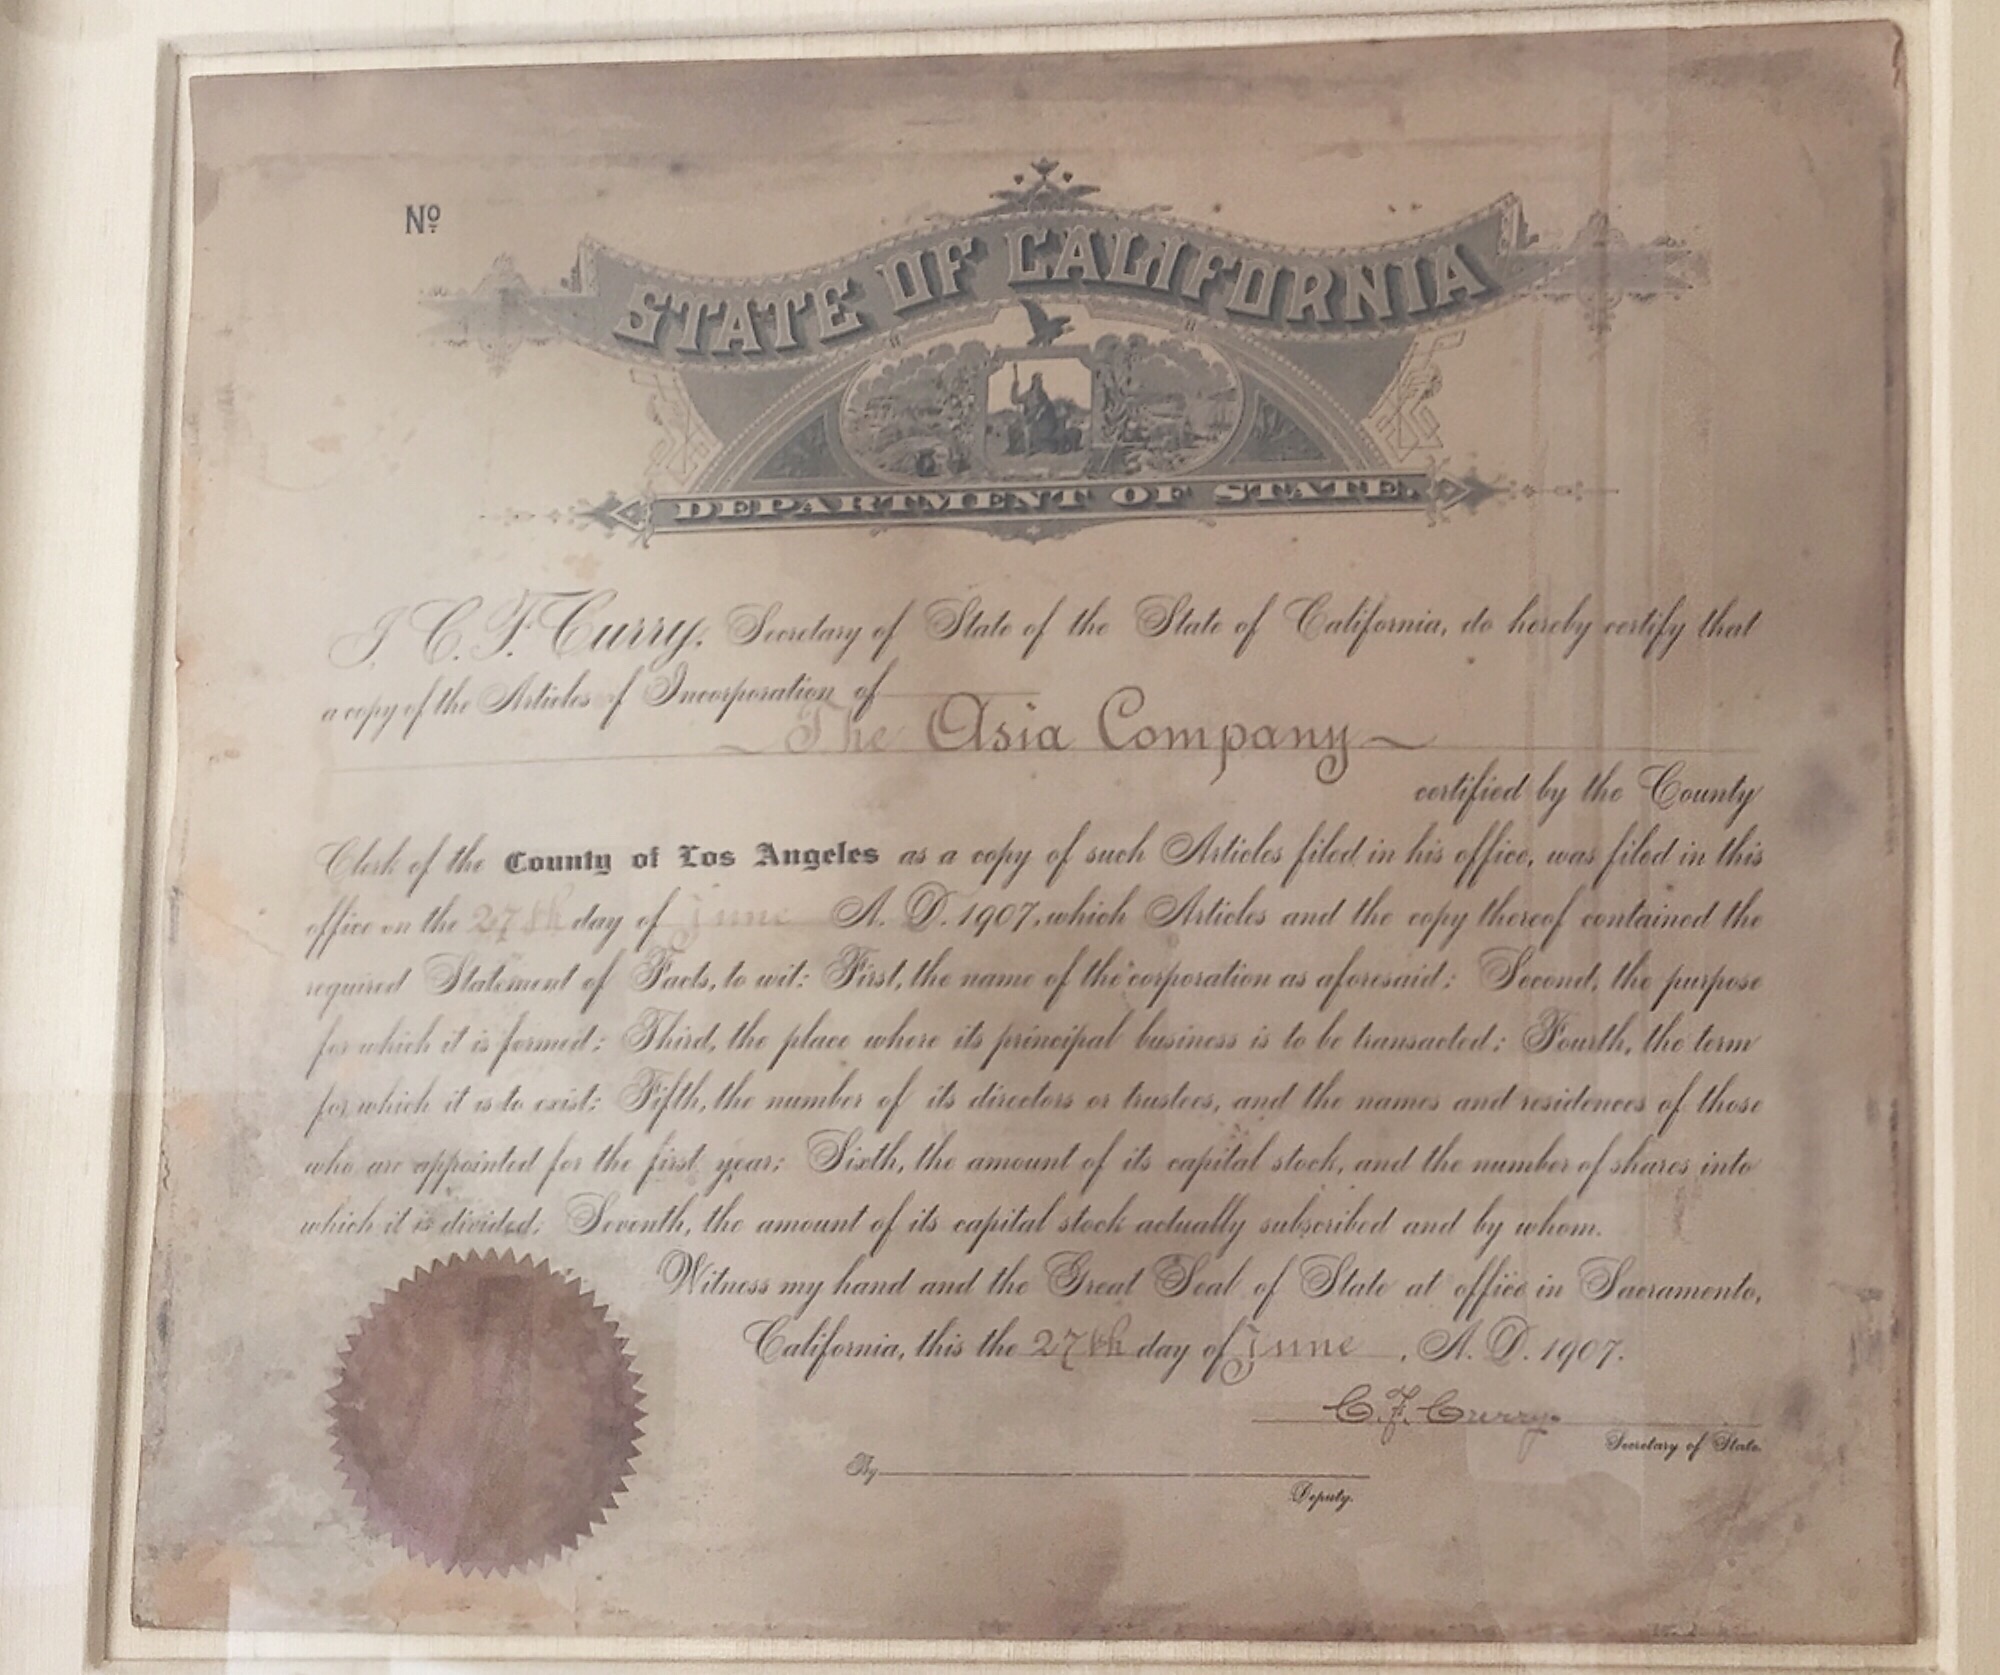 Nº
STATE OF CALIFORNIA
DEPARTMENT OF STATE.
I, C. F. Curry, Secretary of State of the State of California, do hereby certify that
a copy of the Articles of Incorporation of
The Asia Company
certified by the County
Clerk of the County of Los Angeles as a copy of such Articles filed in his office, was filed in this
office on the 27th day of June A. D. 1907, which Articles and the copy thereof contained the
required Statement of Facts, to wit: First, the name of the corporation as aforesaid; Second, the purpose
for which it is formed; Third, the place where its principal business is to be transacted; Fourth, the term
for which it is to exist; Fifth, the number of its directors or trustees, and the names and residences of those
who are appointed for the first year; Sixth, the amount of its capital stock, and the number of shares into
which it is divided; Seventh, the amount of its capital stock actually subscribed and by whom.
Witness my hand and the Great Seal of State at office in Sacramento,
California, this the 27th day of June, A. D. 1907.
C. F. Curry
Secretary of State.
By
Deputy.